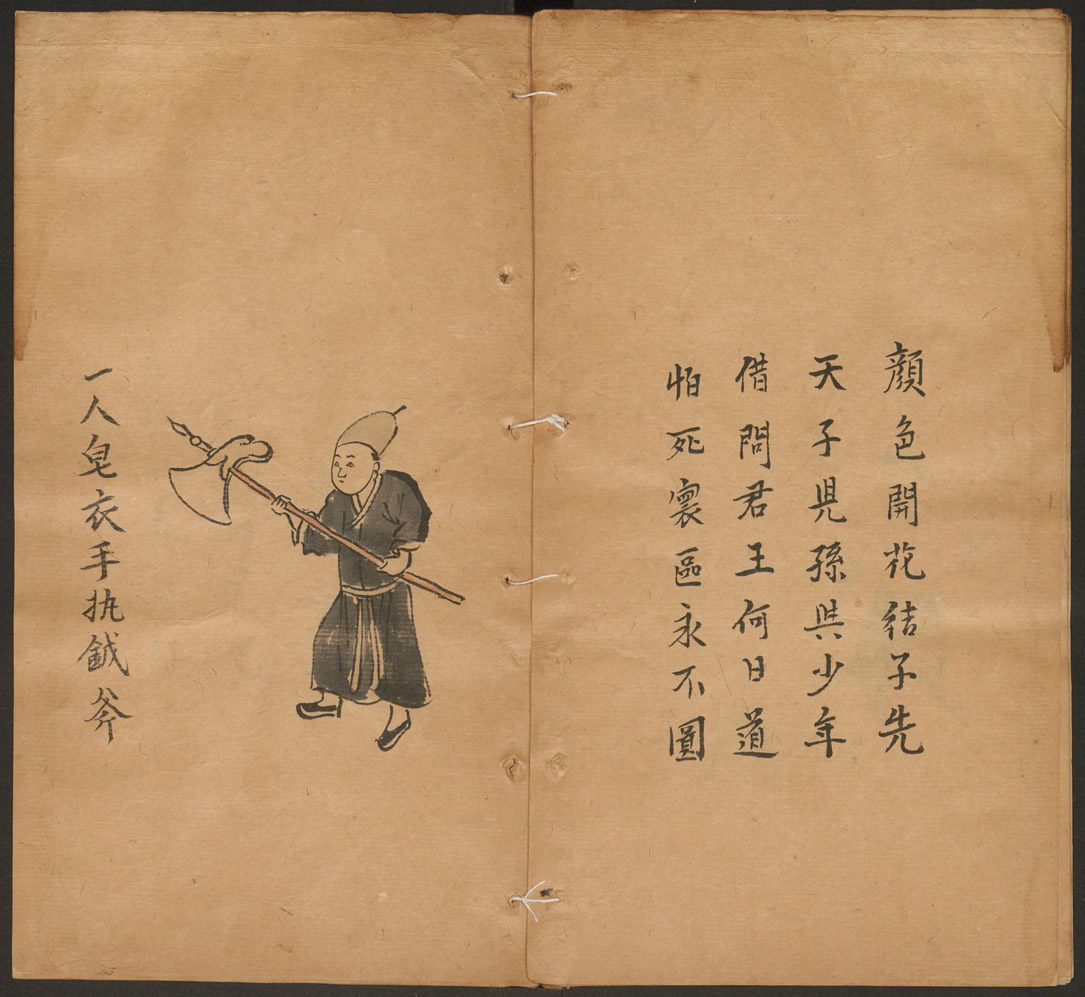 顏色開花結子先
天子児孫與少年
借問君王何日道
怕死寰區永不圓
一人皂衣手执鉞斧